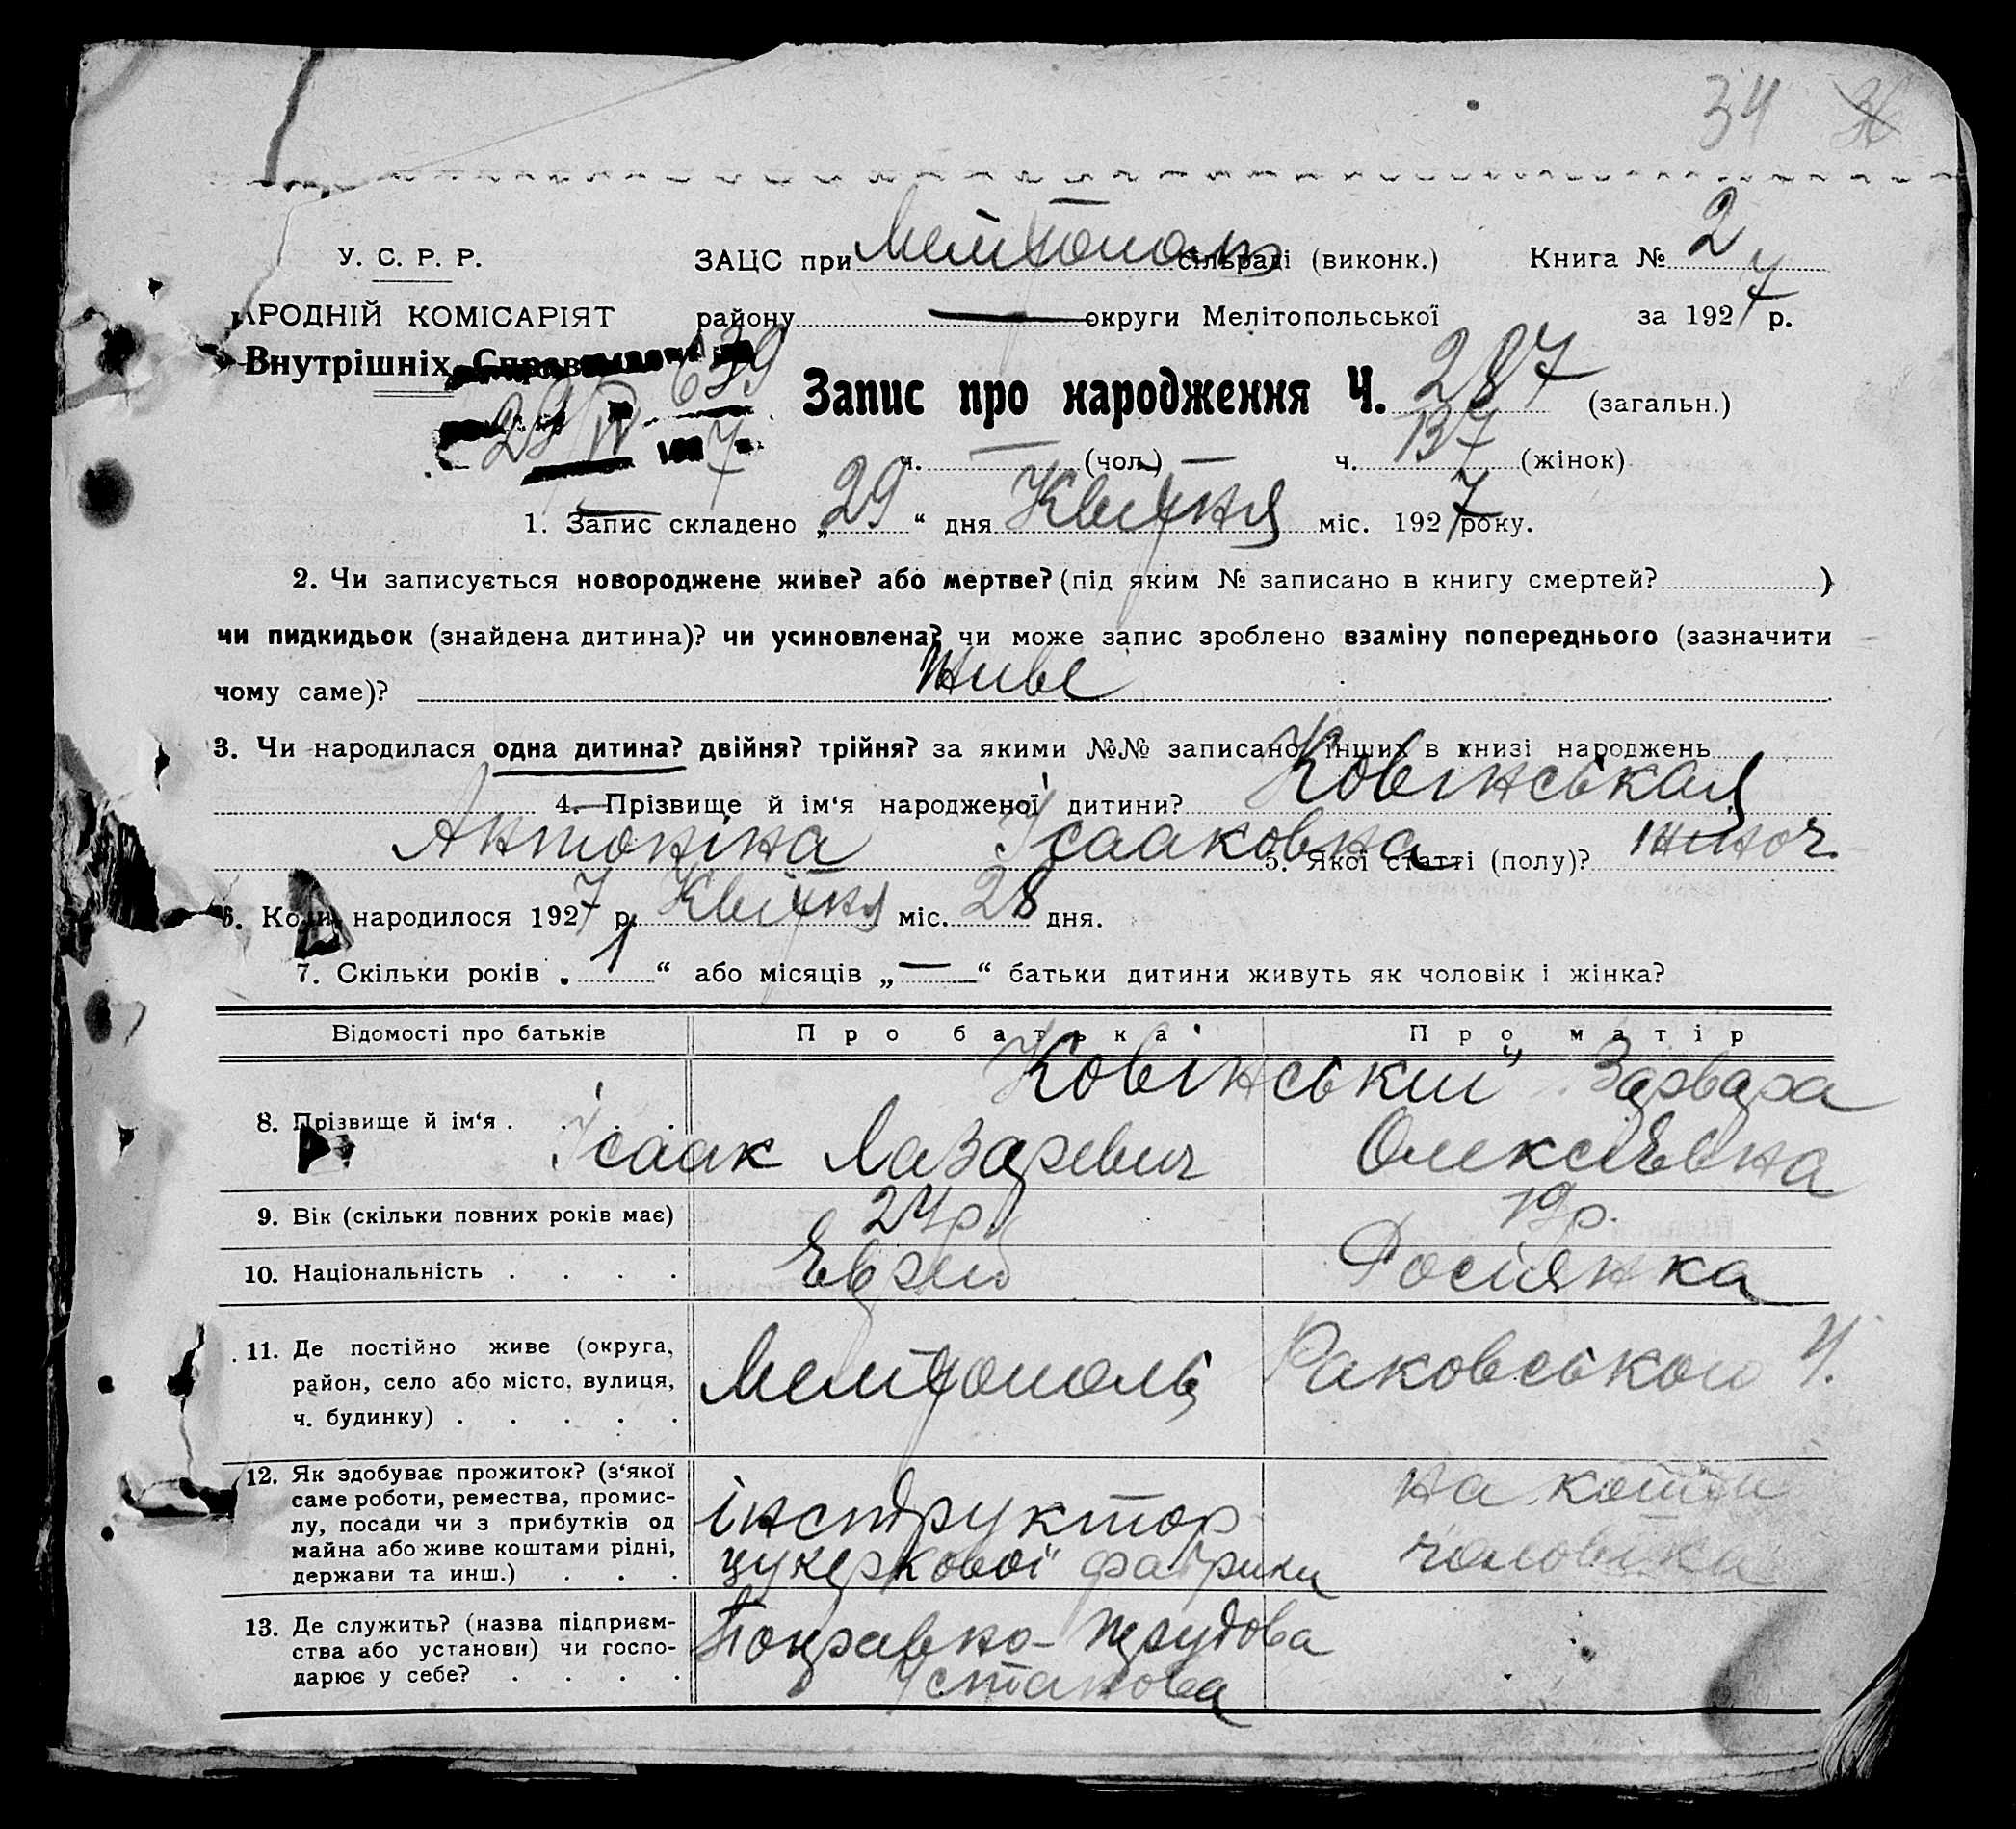 34
У. С. Р. Р. ЗАЦС при Мелітополь сільраді (виконк.) Книга № 2
АРОДНІЙ КОМІСАРІЯТ району — округи Мелітопольської за 1927 р.
Внутрішніх Справ 639
Запис про народження Ч. 287 (загальн.)
29/IV 7 ч. — (чол.) — ч. 137 (жінок)
1. Запис складено „29“ дня Квітня міс. 1927 року.
2. Чи записується новороджене живе? або мертве? (під яким № записано в книгу смертей? )
чи пидкидьок (знайдена дитина)? чи усиновлена? чи може запис зроблено взаміну попереднього (зазначити
чому саме)? живе
3. Чи народилася одна дитина? двійня? трійня? за якими №№ записано інших в книзі народжень
4. Прізвище й ім‘я народженої дитини? Ковінськая
Антоніна Ісааковна 5. Якої статті (полу)? жіноч.
6. Коли народилося 1927 р. Квітня міс. 28 дня.
7. Скільки років „1“ або місяців „—“ батьки дитини живуть як чоловік і жінка?
Відомості про батьків Про батька Про матір
Ковінський Варвара
8. Прізвище й ім‘я . . . . Ісаак Лазаревич Олексіївна
9. Вік (скільки повних років має) 24 р. 19 р.
10. Національність . . . . Еврей Росіянка
11. Де постійно живе (округа,
район, село або місто, вулиця, Мелітополь Раковського 4.
ч. будинку) . . . . .
12. Як здобуває прожиток? (з‘якої на кошти
саме роботи, ремества, промис-
лу, посади чи з прибутків од інструктор
майна або живе коштами рідні, чоловіка
держави та инш.) . . . цукеркової фабрики
13. Де служить? (назва підприєм- Поправно-трудова
ства або установи) чи госпо-
дарює у себе? . . . . Установа